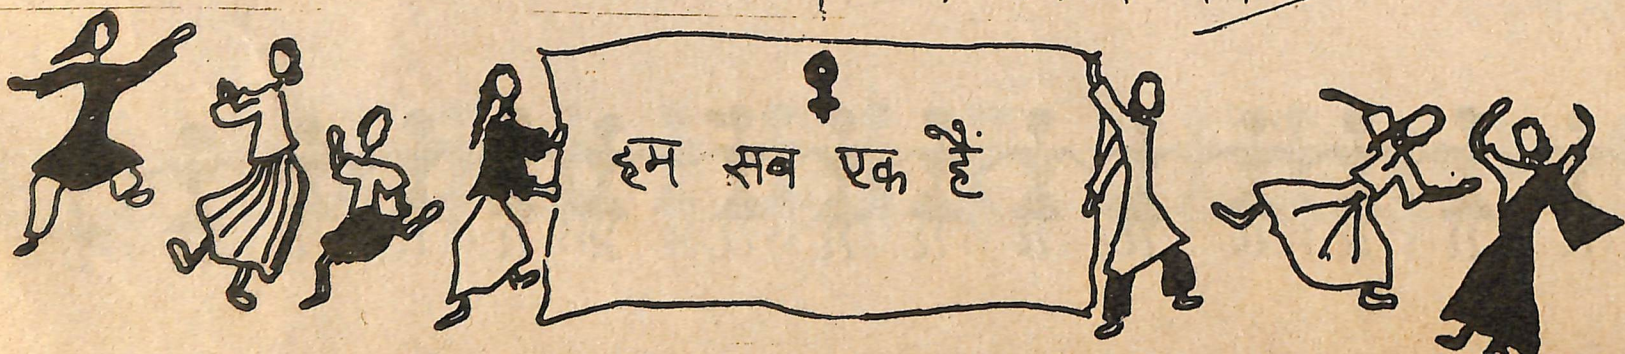 हम सब एक हैं